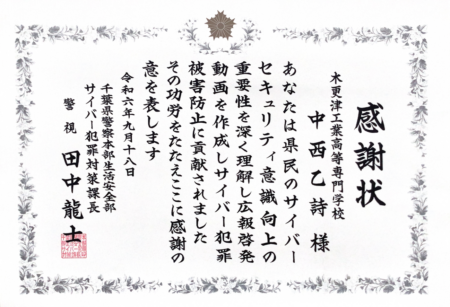 感謝状
木更津工業高等専門学校
中西乙詩 様
あなたは県民のサイバー
セキュリティ意識向上の
重要性を深く理解し広報啓発
動画を作成しサイバー犯罪
被害防止に貢献されました
その功労をたたえここに感謝の
意を表します
令和六年九月十八日
千葉県警察本部生活安全部
サイバー犯罪対策課長
警視 田中龍士